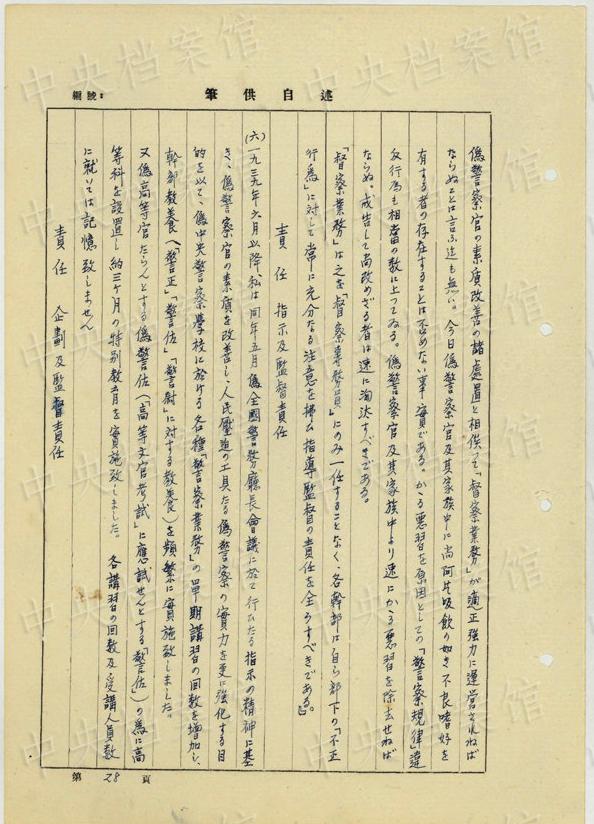 述自供筆
編號：
偽警察官の素質改善の諸處置と相俟つて「督察業務」が適正強力に運営されねば
ならぬことは言ふ迄も無い。今日偽警察官及其家族中に尚阿片吸飲の如き不良嗜好を
有する者の存在することは否めない事實である。かゝる悪習を原因としての「警察規律」違
反行為も相當の数に上つてゐる。偽警察官及其家族中より速にかゝる悪習を除去せねば
ならぬ。戒告して尚改めざる者は速に淘汰すべきである。
「督察業務」は之を「督察事務員」にのみ一任することなく、各幹部は自ら部下の「不正
行為」に対して常に充分なる注意を拂ひ指導監督の責任を全うすべきである。』
責任 指示及監督責任
(六)一九三九年六月以降、私は同年五月偽全國警務廳長會議に於て行ひたる指示の精神に基
き、偽警察官の素質を改善し、人民壓迫の工具たる偽警察の實力を更に強化する目
的を以て、偽中央警察學校に於ける各種「警察業務」の短期講習の回数を増加し、
幹部教養(「警正」「警佐」「警尉」に対する教養)を頻繁に實施致しました。
又偽高等官たらんとする偽警佐(「高等文官考試」に應試せんとする「警佐」)の為に高
等科を設置し約三ケ月の特別教育を實施致しました。各講習の回数及受講人員数
に就いては記憶致しません
責任 企劃及監督責任
第 28 頁
中央档案馆